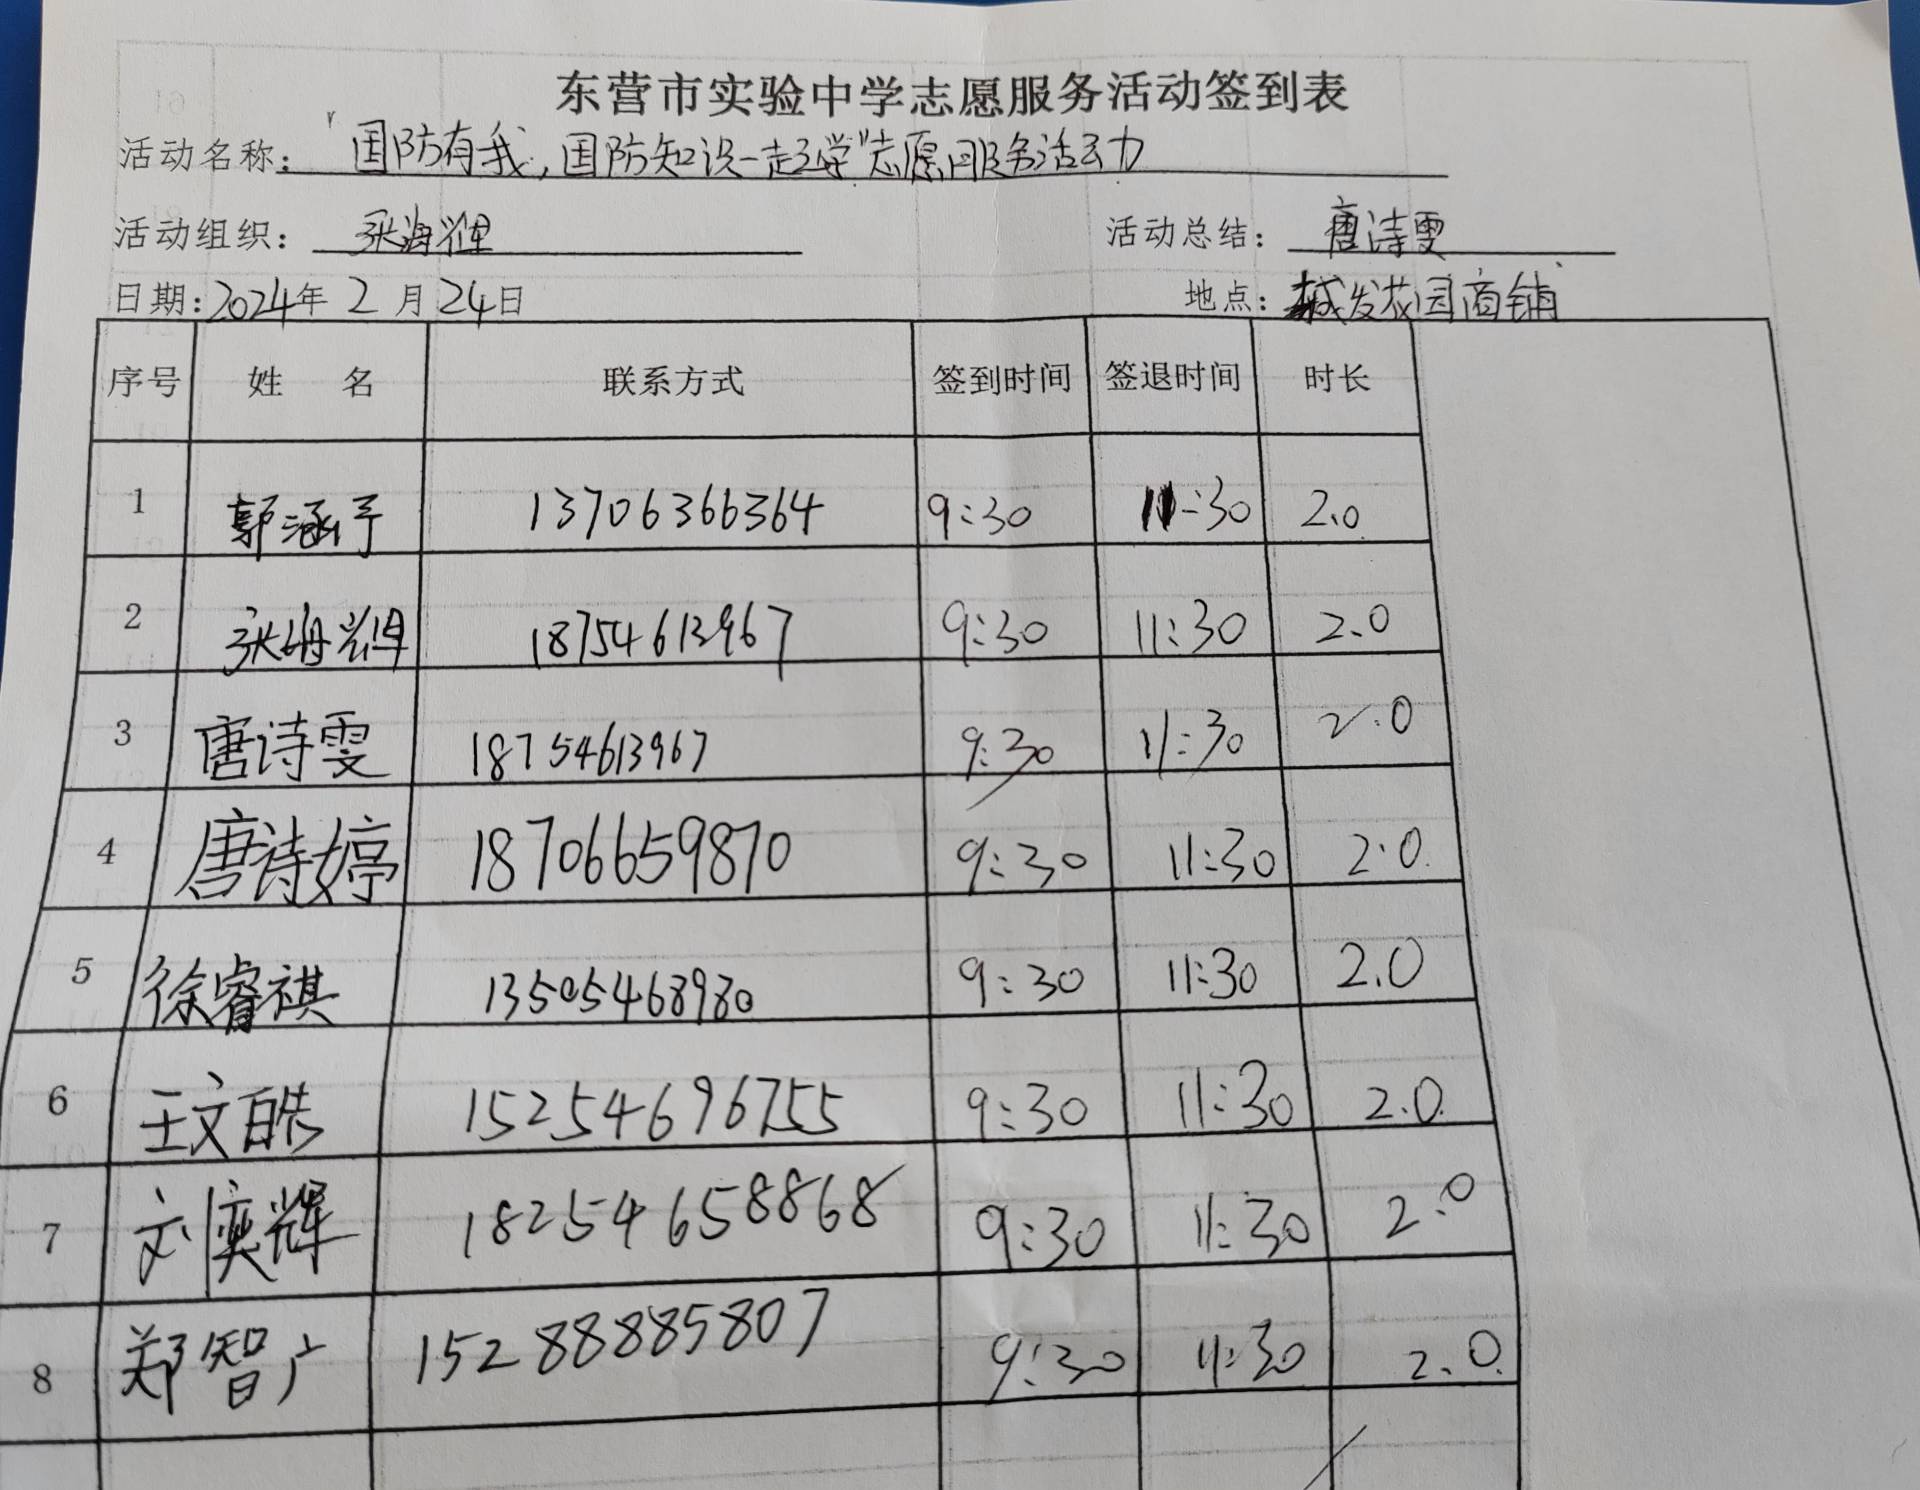 东营市实验中学志愿服务活动签到表
活动名称："国防有我，国防知识一起学"志愿服务活动
活动组织：张海辉 活动总结：唐诗雯
日期：2024年 2 月 24日 地点：城发花园商铺
序号 姓 名 联系方式 签到时间 签退时间 时长
1 郭涵予 13706366364 9:30 11:30 2.0
2 张海辉 18754613967 9:30 11:30 2.0
3 唐诗雯 18754613967 9:30 11:30 2.0
4 唐诗婷 18706659870 9:30 11:30 2.0
5 徐睿祺 13505468980 9:30 11:30 2.0
6 王文皓 15254696755 9:30 11:30 2.0
7 刘奕辉 18254658868 9:30 11:30 2.0
8 郑智广 15288885807 9:30 11:30 2.0